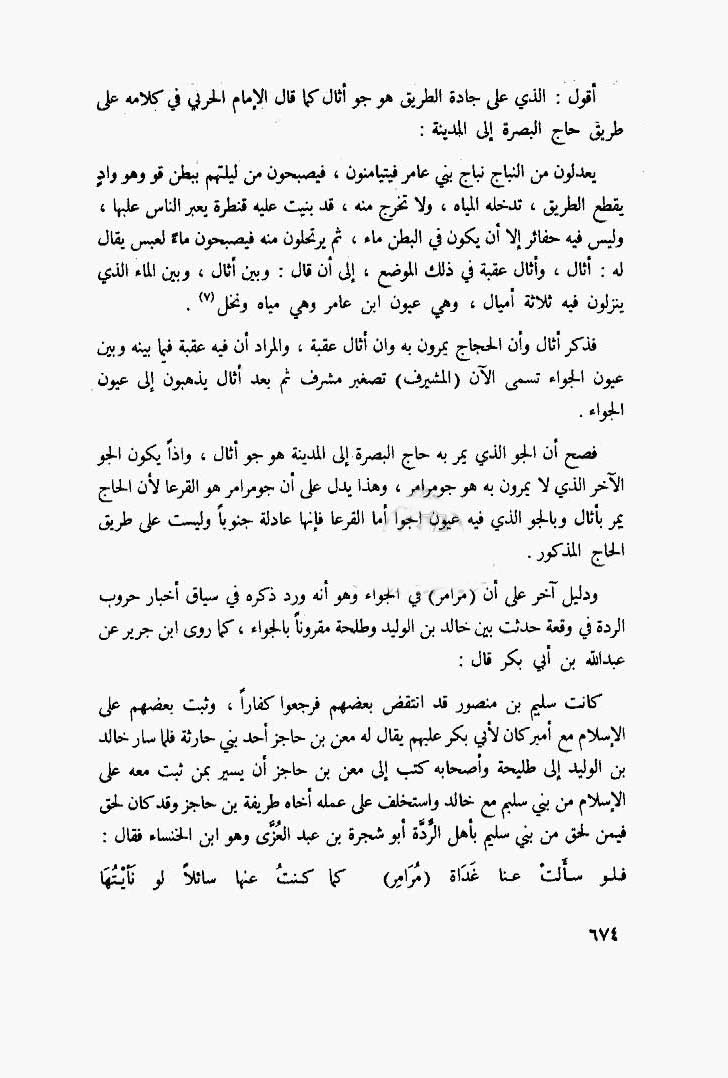 أقول : الذي على جادة الطريق هو جو أثال كما قال الإمام الحربي في كلامه على
طريق حاج البصرة إلى المدينة :
يعدلون من النباج نباج بني عامر فيتيامنون ، فيصبحون من ليلتهم ببطن قو وهو وادٍ
يقطع الطريق ، تدخله المياه ، ولا تخرج منه ، قد بنيت عليه قنطرة يعبر الناس عليها ،
وليس فيه حفائر إلا أن يكون في البطن ماء ، ثم يرتحلون منه فيصبحون ماءً لعبس يقال
له : أثال ، وأثال عقبة في ذلك الموضع ، إلى أن قال : وبين أثال ، وبين الماء الذي
ينزلون فيه ثلاثة أميال ، وهي عيون ابن عامر وهي مياه ونخل(٧) .
فذكر أثال وأن الحجاج يمرون به وان أثال عقبة ، والمراد أن فيه عقبة فيما بينه وبين
عيون الجواء تسمى الآن (المشيرف) تصغير مشرف ثم بعد أثال يذهبون إلى عيون
الجواء .
فصح أن الجو الذي يمر به حاج البصرة إلى المدينة هو جو أثال ، واذاً يكون الجو
الآخر الذي لا يمرون به هو جومرامر ، وهذا يدل على أن جومرامر هو القرعا لأن الحاج
يمر بأثال وبالجو الذي فيه عيون اجوا أما القرعا فإنها عادلة جنوباً وليست على طريق
الحاج المذكور .
ودليل آخر على أن (مرامر) في الجواء وهو أنه ورد ذكره في سياق أخبار حروب
الردة في وقعة حدثت بين خالد بن الوليد وطلحة مقروناً بالجواء ، كما روى ابن جرير عن
عبدالله بن أبي بكر قال :
كانت سليم بن منصور قد انتقض بعضهم فرجعوا كفاراً ، وثبت بعضهم على
الإسلام مع أمير كان لأبي بكر عليهم يقال له معن بن حاجز أحد بني حارثة فلما سار خالد
بن الوليد إلى طليحة وأصحابه كتب إلى معن بن حاجز أن يسير بمن ثبت معه على
الإسلام من بني سليم مع خالد واستخلف على عمله أخاه طريفة بن حاجز وقد كان لحق
فيمن لحق من بني سليم بأهل الرِّدَّة أبو شجرة بن عبد العُزَّى وهو ابن الخنساء فقال :
فلو سأَلتْ عنا غَدَاة (مُرَامِر) كما كنتُ عنها سائلاً لو نَأَيْتُهَا
٦٧٤